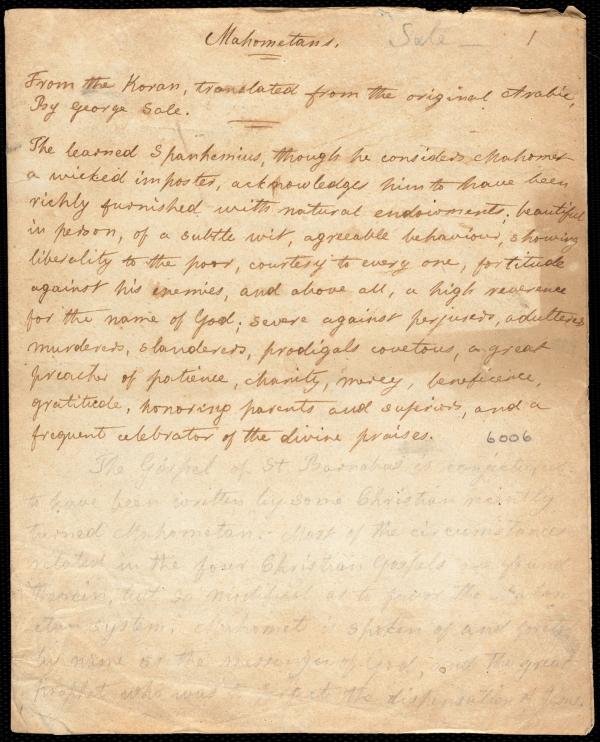 Mahometans. Sale — 1
From the Koran, translated from the original Arabic,
By George Sale.
The learned Spanhemius, though he considers Mahomet
a wicked imposter, acknowledges him to have been
richly furnished with natural endowments, beautiful
in person, of a subtle wit, agreeable behaviour, showing
liberality to the poor, courtesy to every one, fortitude
against his enemies, and above all, a high reverence
for the name of God; severe against perjurers, adulterers
murderers, slanderers, prodigals covetous, a great
preacher of patience, charity, mercy, beneficence,
gratitude, honoring parents and superiors, and a
frequent celebrator of the divine praises. 6006
The Gospel of St. Barnabas is conjectured
to have been written by some Christian recently
turned Mahometan. Most of the circumstances
related in the four Christian Gospels are found
therein, but so modified as to favor the Mahom
etan system. Mahomet is spoken of and
by name as the messenger of God, and the great
prophet who was to perfect the dispensation of Jesus.